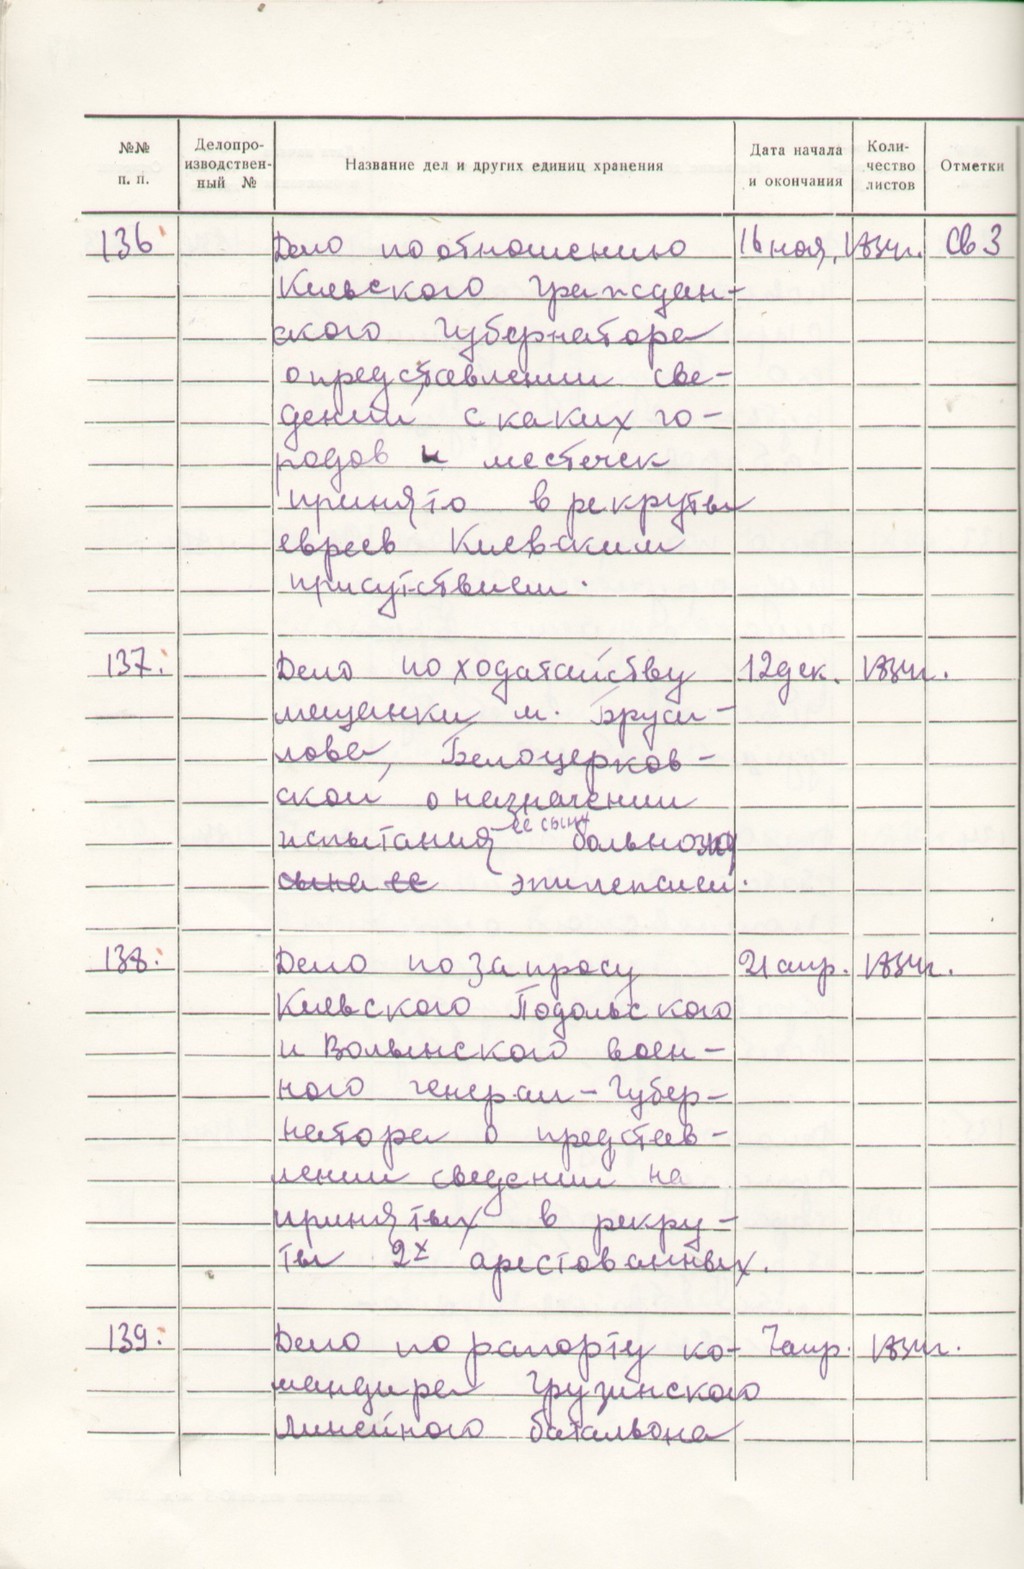 №№ п. п.
Делопро-
изводствен-
ный №
Название дел и других единиц хранения
Дата начала
и окончания
Коли-
чество
листов
Отметки
136 Дело по отношению 16 ноя. 1834г. Св 3
Киевского Граждан-
ского Губернатора
о представлении све-
дений с каких го-
родов и местечек
принято в рекруты
евреев Киевским
присутствием.
137. Дело по ходатайству 12 дек. 1834г.
мещанки м. Бруси-
лова, Белоцерков-
ской о назначении
испытания ее сыну больного
сына ее эпилепсией.
138. Дело по запросу 21 апр. 1834г.
Киевского Подольского
и Волынского воен-
ного генерал-Губер-
натора о представ-
лении сведений на
принятых в рекру-
ты 2х арестованных.
139. Дело по рапорту ко- 7 апр. 1834г.
мандира Грузинского
Линейного баталь­она